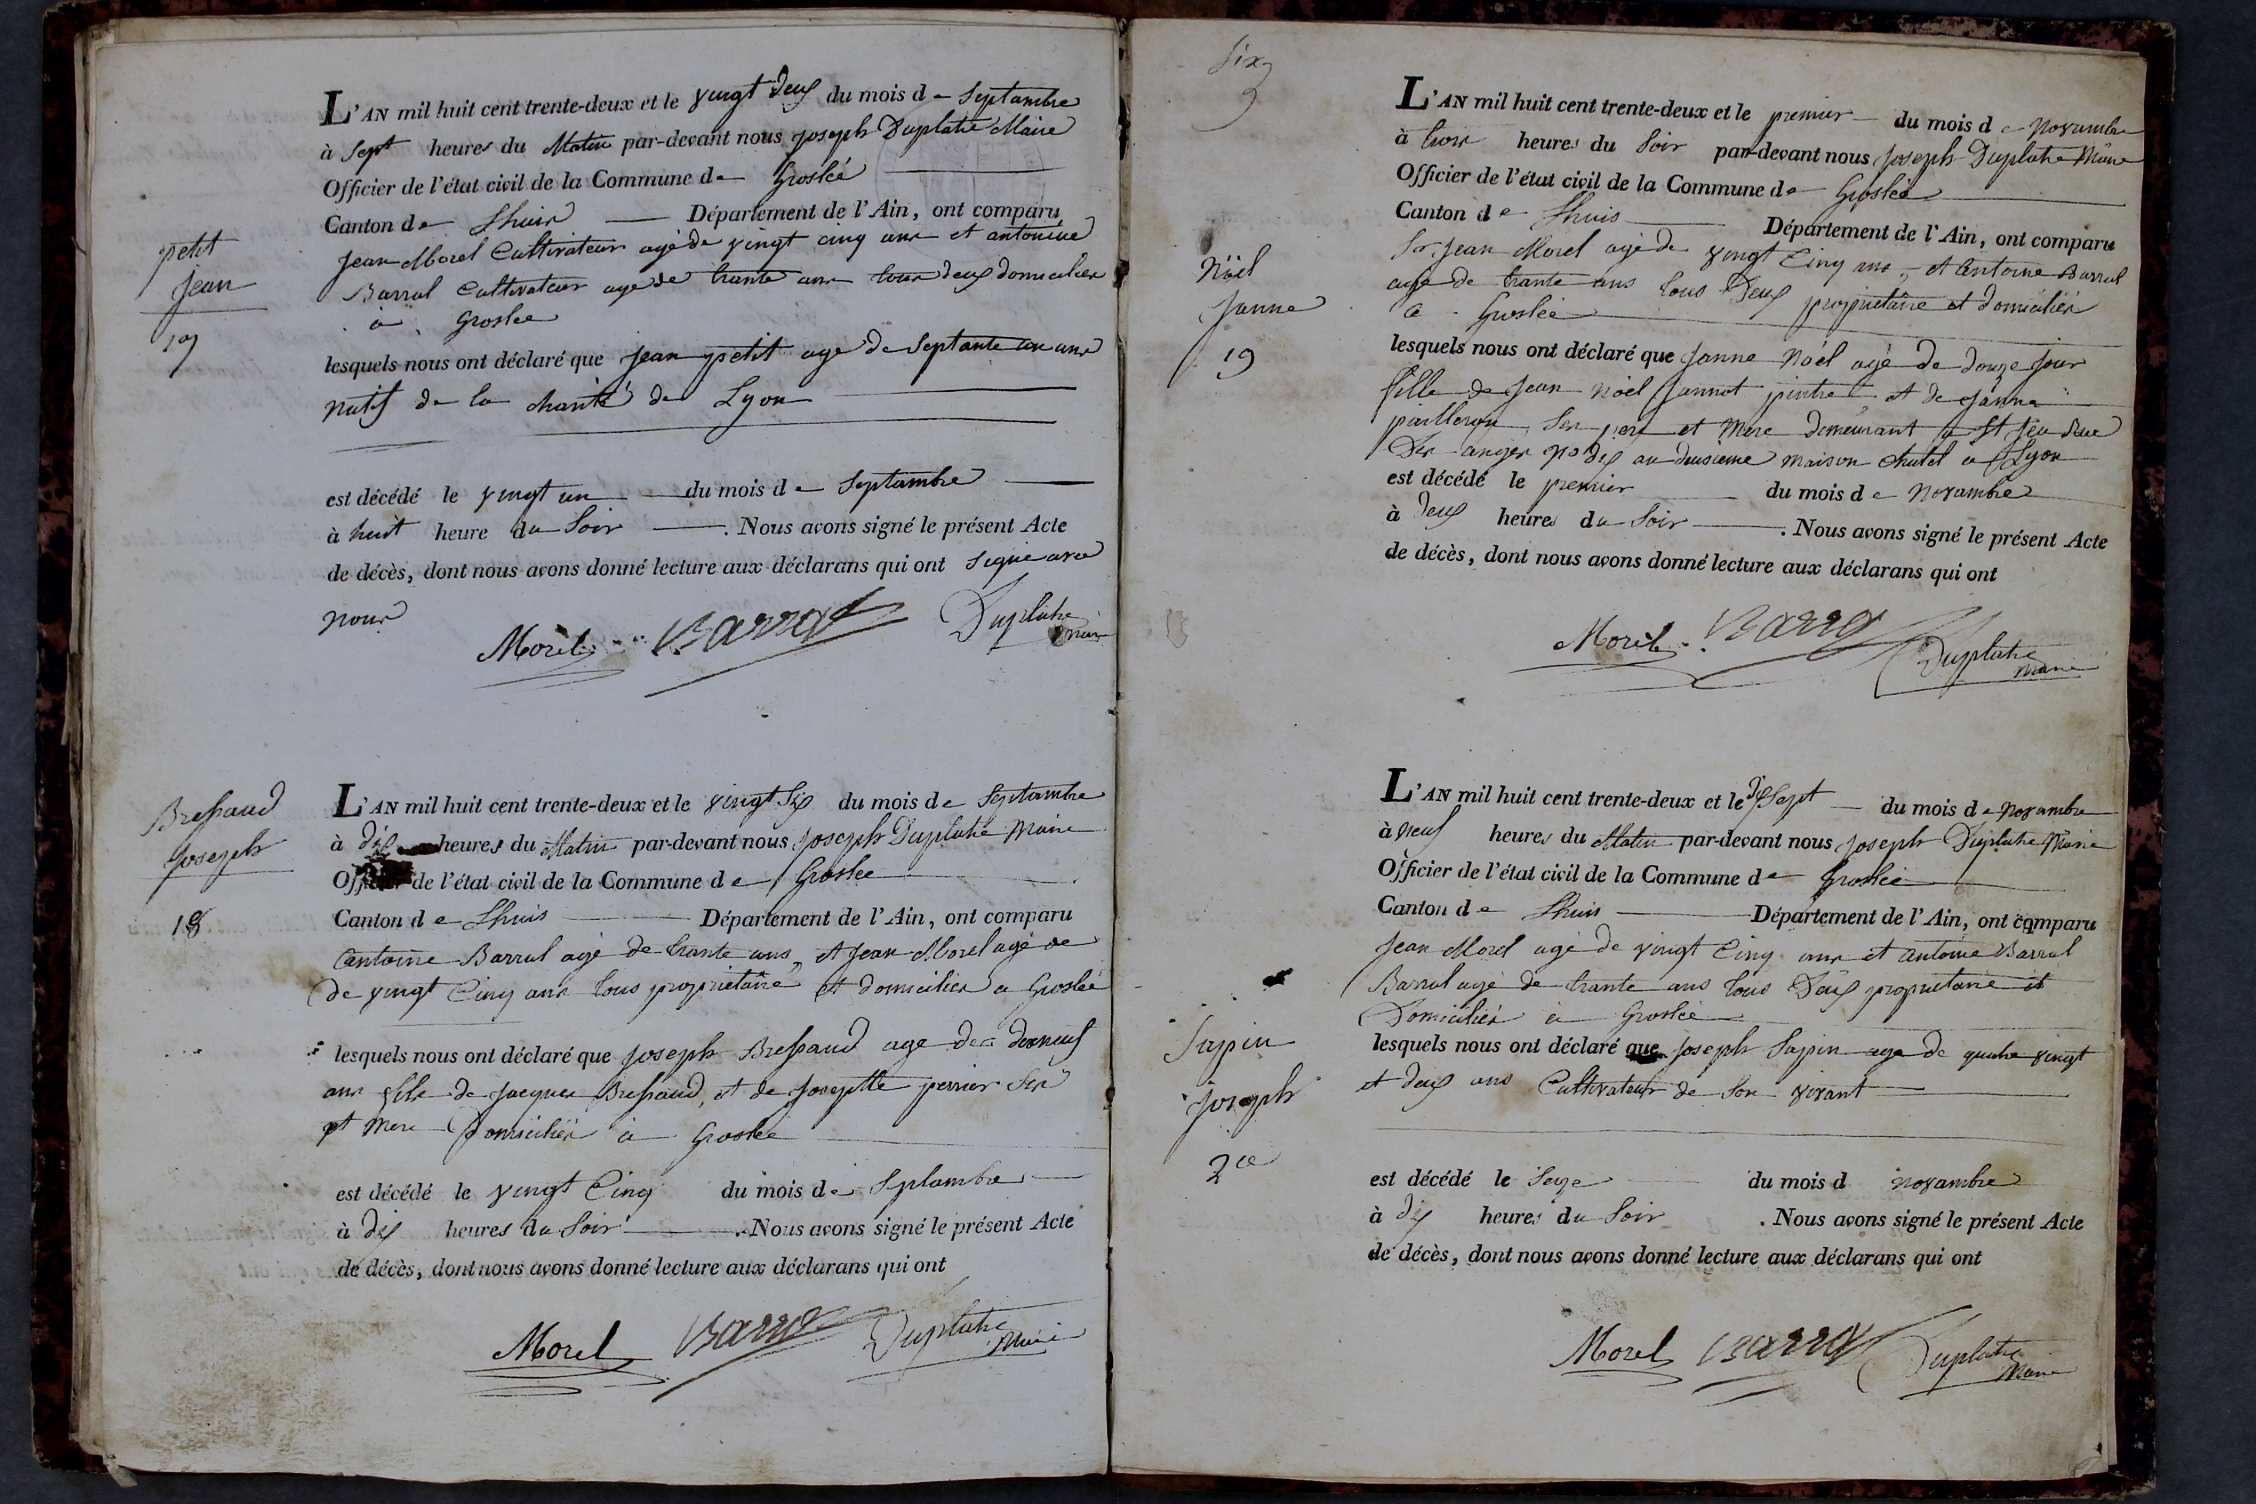 petit
Jean
17
L'AN mil huit cent trente-deux et le vingt deux du mois de Septambre
à Sept heures du Matin par-devant nous Joseph Duplatre Maire
Officier de l'état civil de la Commune de Groslée
Canton de Lhuis Département de l'Ain, ont comparu
Jean Morel Cultivateur agé de vingt cinq ans et antoine
Barral Cultivateur agé de trante ans tous deux domiciliés
à Groslée
lesquels nous ont déclaré que Jean petit agé de Septante un ans
natif de la charité de Lyon
est décédé le vingt un du mois de Septambre
à huit heure du Soir . Nous avons signé le présent Acte
de décès, dont nous avons donné lecture aux déclarans qui ont Signé avec
nous
Morel Barral Duplatre
Maire
Bressaud
Joseph
18
L'AN mil huit cent trente-deux et le vingt Six du mois de Septambre
à dix heures du Matin par-devant nous Joseph Duplatre Maire
Officier de l'état civil de la Commune de Groslée
Canton de Lhuis Département de l'Ain, ont comparu
antoine Barral agé de trante ans, et Jean Morel agé de
de vingt Cinq ans tous propriétaire et domiciliés a Groslée
lesquels nous ont déclaré que Joseph Bressaud age de dixneuf
ans fils de Jacques Bressaud, et de Josephte perrier Ses
pt Mere Domiciliés à Groslée
est décédé le vingt Cinq du mois de Septambre
à dix heures du Soir . Nous avons signé le présent Acte
de décès, dont nous avons donné lecture aux déclarans qui ont
Morel Barral Duplatre
Maire
Six
Nöel
Janne
19
L'AN mil huit cent trente-deux et le premier du mois de Novambre
à trois heures du Soir par-devant nous Joseph Duplatre Maire
Officier de l'état civil de la Commune de Groslée
Canton de Lhuis Département de l'Ain, ont comparu
Sr. Jean Morel agé de vingt Cinq ans, et Antoine Barral
agé de trante ans tous Deux propriétaire et domiciliés
a Groslée
lesquels nous ont déclaré que Janne Noël agé de douze Jour
fille de Jean Noël Jannot pintre et de Janne
pailleron Ses pere et Mere demeurant a St Jea Rue
Des anges no dix au deusieme maison chatel a Lyon
est décédé le premier du mois de Novambre
à deux heures du Soir . Nous avons signé le présent Acte
de décès, dont nous avons donné lecture aux déclarans qui ont
Morel Barral Duplatre
Maire
Sapin
Joseph
L'AN mil huit cent trente-deux et le dix Sept du mois de Novambre
à neuf heures du Matin par-devant nous Joseph Duplatre Maire
Officier de l'état civil de la Commune de Groslée
Canton de Lhuis Département de l'Ain, ont comparu
Jean Morel agé de vingt Cinq ans et antoine Barral
Barral agé de trante ans tous Deux propriétaire et
Domiciliés à Groslée
lesquels nous ont déclaré que Joseph Sapin age de quatre vingt
et deux ans Cultivateur de Son vivant
est décédé le Seize du mois d novambre
à dix heures du Soir . Nous avons signé le présent Acte
de décès, dont nous avons donné lecture aux déclarans qui ont
Morel Barral Duplatre
Maire